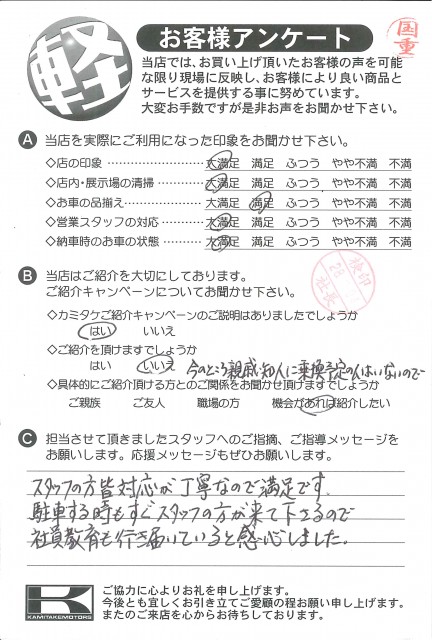 軽
お客様アンケート
国重
当店では、お買い上げ頂いたお客様の声を可能
な限り現場に反映し、お客様により良い商品と
サービスを提供する事に努めています。
大変お手数ですが是非お声をお聞かせ下さい。
A 当店を実際にご利用になった印象をお聞かせ下さい。
◇店の印象 ……………………… 大満足 満足 ふつう やや不満 不満
◇店内・展示場の清掃 ………… 大満足 満足 ふつう やや不満 不満
◇お車の品揃え ………………… 大満足 満足 ふつう やや不満 不満
◇営業スタッフの対応 ………… 大満足 満足 ふつう やや不満 不満
◇納車時のお車の状態 ………… 大満足 満足 ふつう やや不満 不満
B 当店はご紹介を大切にしてあります。
ご紹介キャンペーンについてお聞かせ下さい。
検印
社長
◇カミタケご紹介キャンペーンのご説明はありましたでしょうか
はい いいえ
◇ご紹介を頂けますでしょうか
はい いいえ 今のところ親戚・知人に乗換予定の人はいないので
◇具体的にご紹介頂ける方とのご関係をお聞かせ頂けますでしょうか
ご親族 ご友人 職場の方 機会があれば紹介したい
C 担当させて頂きましたスタッフへのご指摘、ご指導メッセージを
お願いします。応援メッセージもぜひお願いします。
スタッフの方皆対応が丁寧なので満足です。
駐車する時もすぐスタッフの方が来て下さるので
社員教育も行き届いていると感心しました。
K
KAMITAKEMOTORS
ご協力に心よりお礼を申し上げます。
今後とも宜しくお引き立てご愛顧の程お願い申し上げます。
またのご来店を心からお待ちしております。